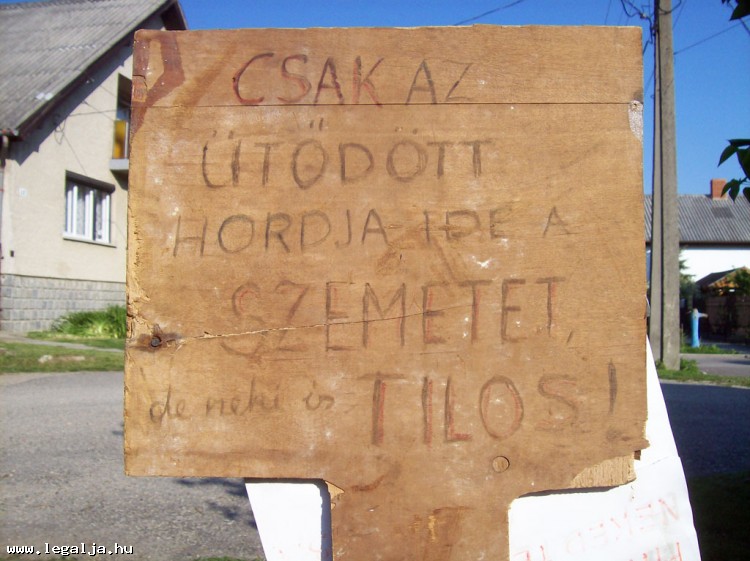 CSAK AZ
ÜTŐDÖTT
HORDJA IDE A
SZEMETET,
de neki is TILOS!
NEKED
www.legalja.hu